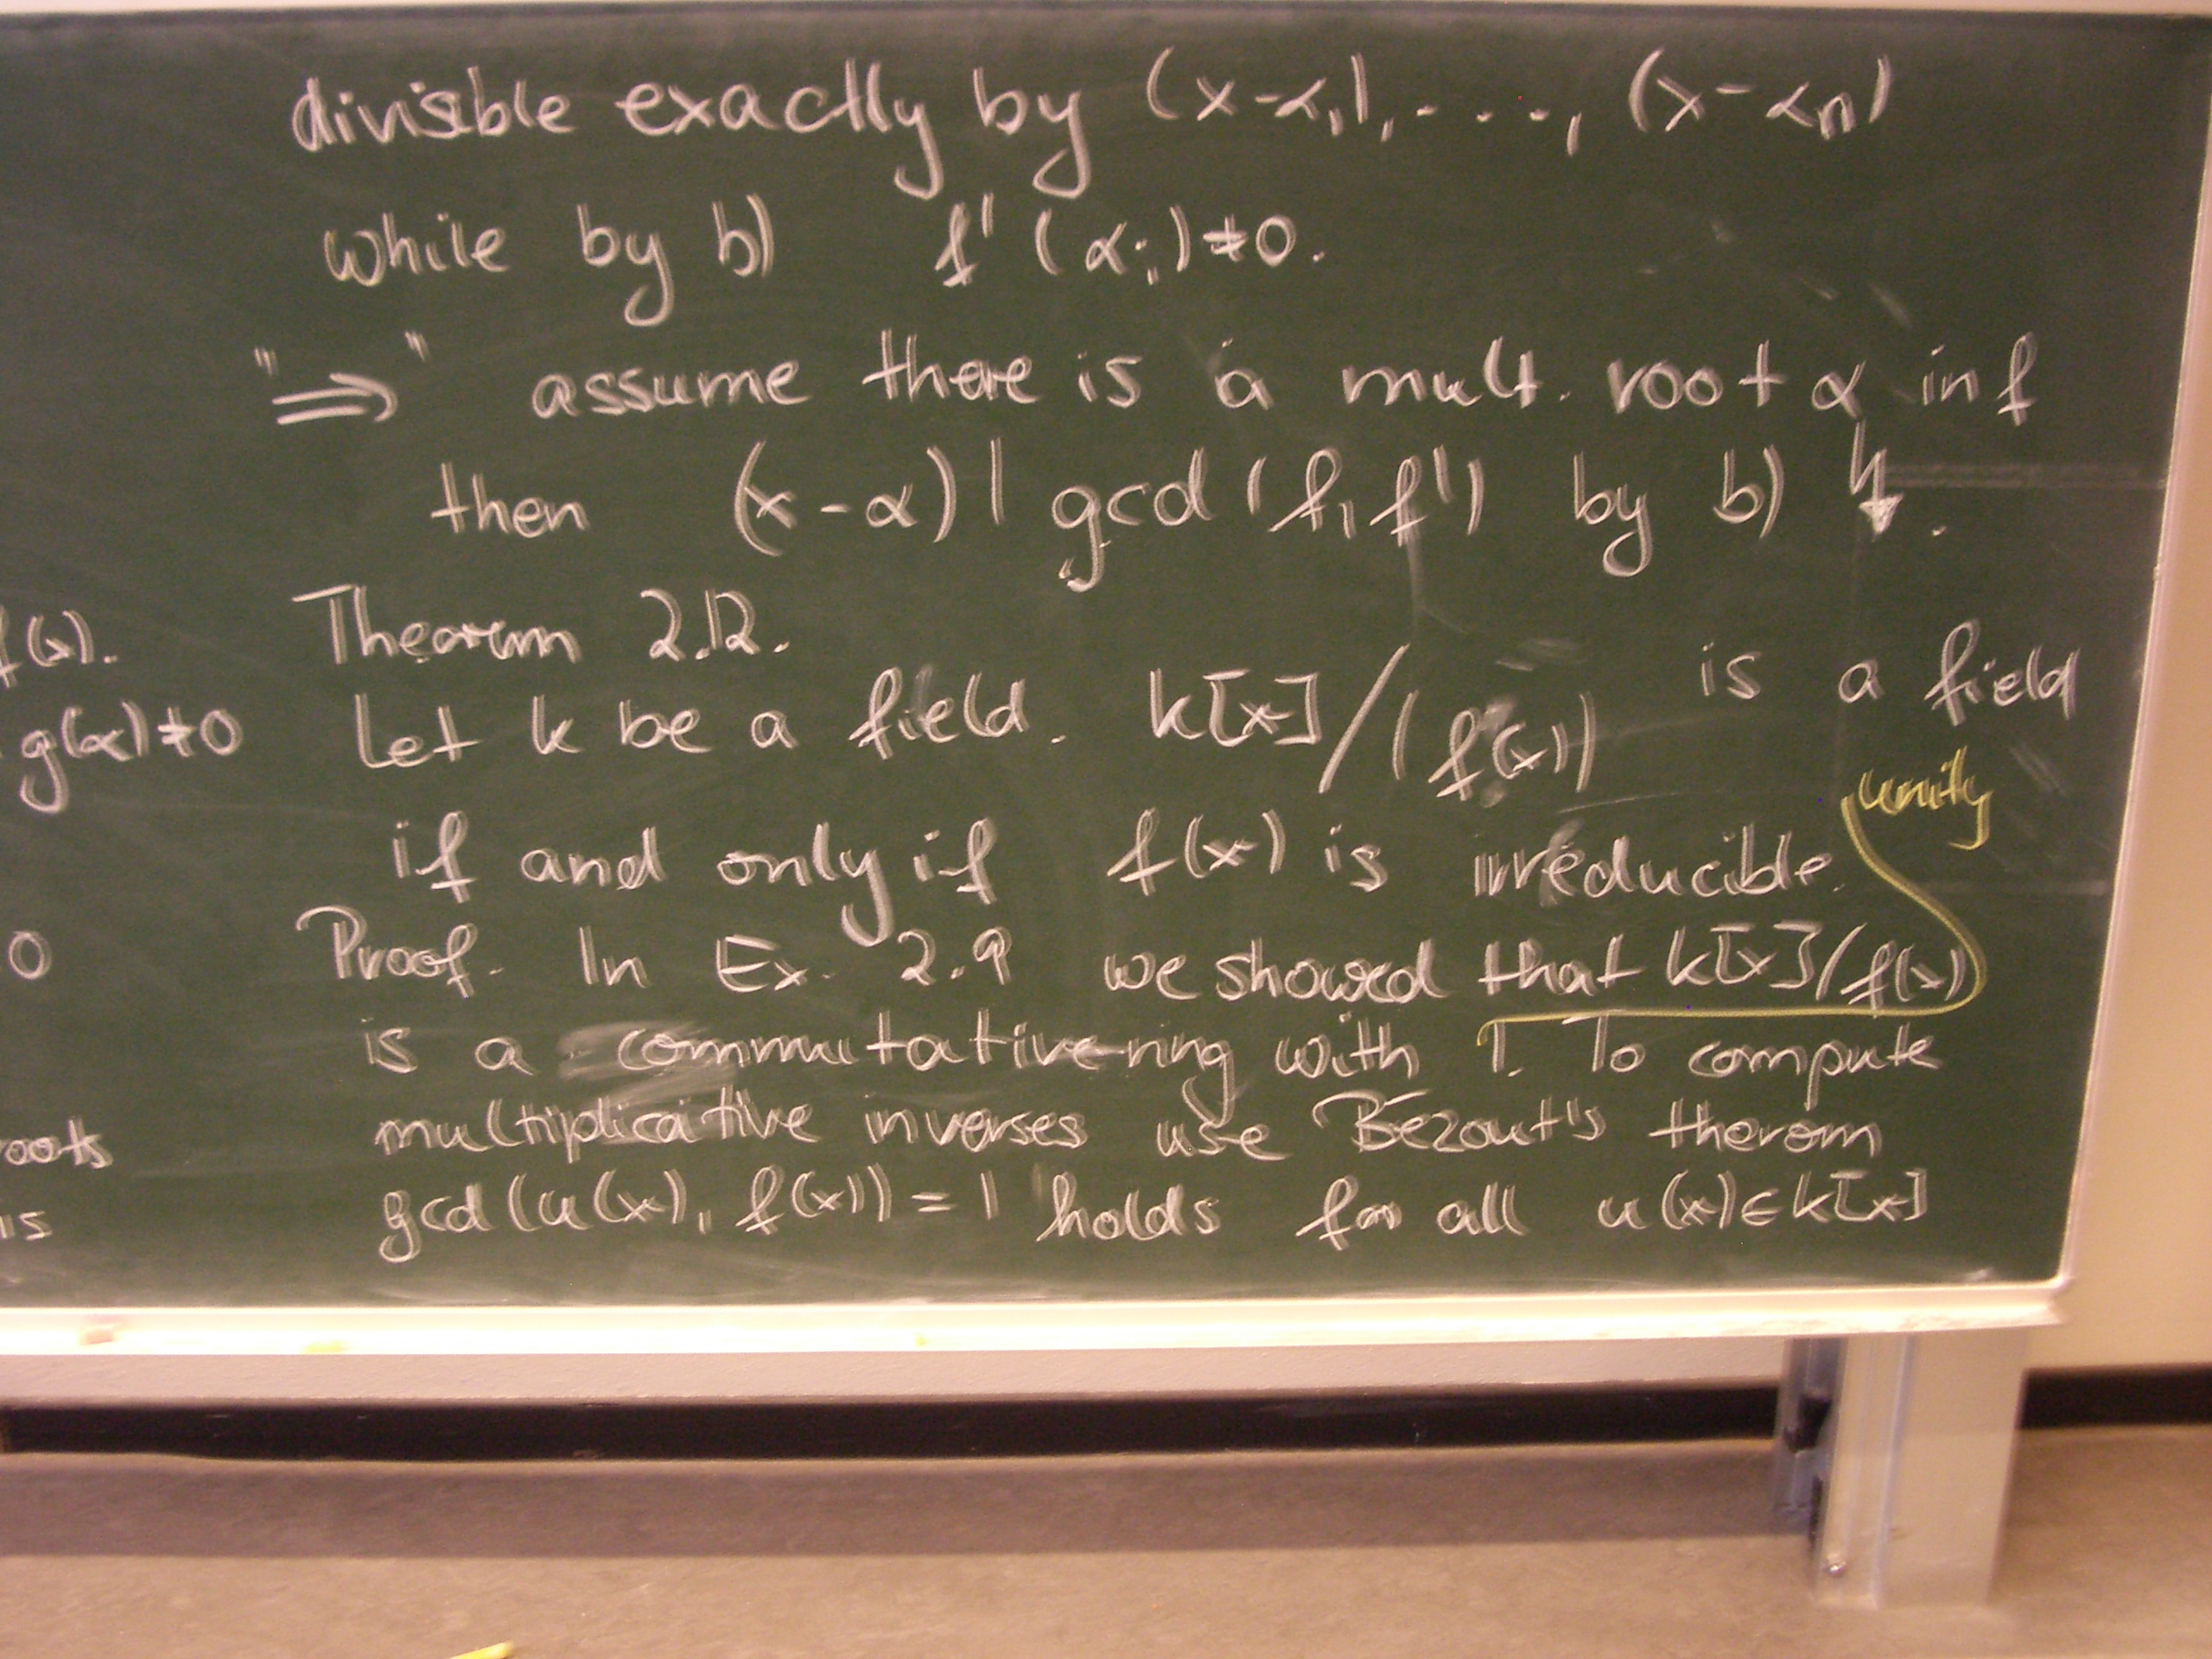 divisible exactly by (x-α₁), ..., (x-αₙ)
while by b) f'(αᵢ)≠0.
"⇒" assume there is a mult. root α in f
then (x-α) | gcd(f,f') by b) ↯.
Theorem 2.12.
Let k be a field. k[x]/(f(x)) is a field
unity
if and only if f(x) is irreducible.
Proof. In Ex. 2.9 we showed that k[x]/f(x)
is a commutative ring with 1. To compute
multiplicative inverses use Bézout's therom
gcd(u(x), f(x)) = 1 holds for all u(x)∈k[x]
f(x).
g(α)≠0
0
roots
is